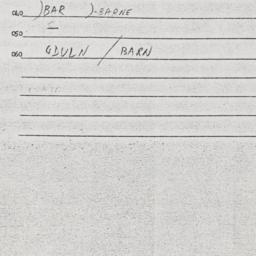 040 )BAR )-BARNE
050
060 GDULN / BARN